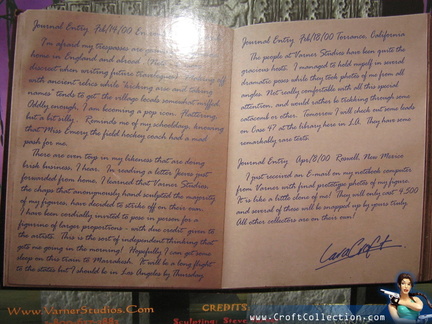 Journal Entry Feb/14/00 En
I'm afraid my trespasses are
home in England and abroad. I'll
discreet when writing future travelogues.
with ancient relics while "kicking arse and taking
names" tends to get the village locals somewhat miffed.
Oddly enough, I am becoming a pop icon. Flattering,
but a bit silly. Reminds me of my schooldays, knowing
that Miss Emery the field hockey coach had a mad
pash for me.
There are even toys in my likeness that are doing
brisk business, I hear. In reading a letter Jeeves just
forwarded from home, I learned that Varner Studios,
the chaps that anonymously hand sculpted the majority
of my figures, have decided to strike off on their own.
I have been cordially invited to pose in person for a
figurine of larger proportions - with due credit given to
the artists. This is the sort of independent thinking that
gets me going in the morning! Hopefully I can get some
sleep on this train to Marrakesh. It will be a long flight
to the states but I should be in Los Angeles by Thursday.
Journal Entry Feb/18/00 Torrance, California
The people at Varner Studios have been quite the
gracious hosts. I managed to hold myself in several
dramatic poses while they took photos of me from all
angles. Not really comfortable with all this special
attention, and would rather be trekking through some
catacomb or other. Tomorrow I will check out some leads
on Case 47 at the library here in L.A. They have some
remarkably rare texts.
Journal Entry Apr/8/00 Roswell, New Mexico
I just received an E-mail on my notebook computer
from Varner with final prototype photos of my figure.
It is like a little clone of me! They will only cast 4,500
and several of these will be snapped up by yours truly.
All other collectors are on their own!
Lara Croft
www.VarnerStudios.Com
CREDITS
Sculpting: Steve
www.CroftCollection.com